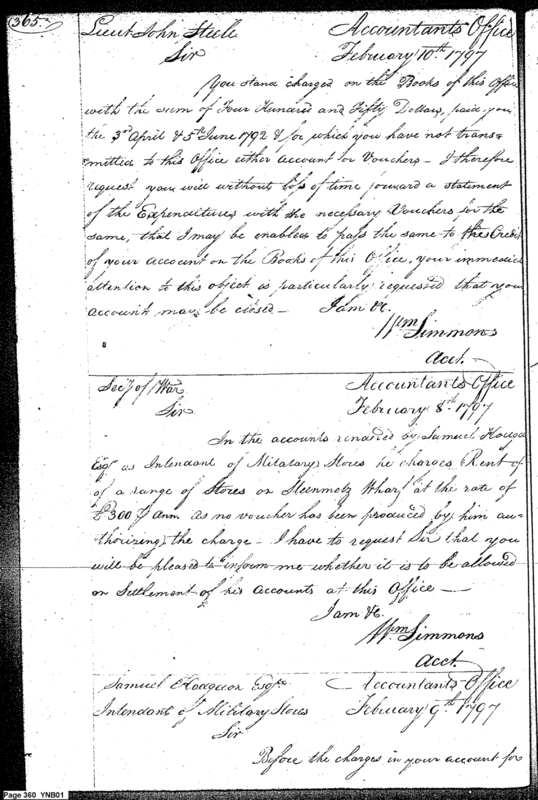 365
Lieut John Steele Accountants Office
Sir February 10th 1797
You stand charged on the Books of this Office
with the sum of Four Hundred and Fifty Dollars, paid you
the 3rd April & 5th June 1792 & for which you have not trans=
mitted to this Office either account or Vouchers – I therefore
request you will without loss of time forward a statement
of the Expenditures with the necessary Vouchers for the
same, that I may be enabled to pass the same to the Credit
of your account on the Books of this Office, your immediate
attention to this object is particularly requested that your
account may be closed – I am &c.
Wm Simmons
Acct.
Secy of War Accountants Office
Sir February 8th 1797
In the accounts rendered by Samuel Hodgdon
Esqr as Intendant of Military Stores he charges Rent of
of a range of Stores on Steinmetz Wharf at the rate of
£300 ⅌ Ann as no voucher has been produced by him au=
thorizing the charge – I have to request Sir that you
will be pleased to inform me whether it is to be allowed
on Settlement of his accounts at this Office –
I am &c.
Wm Simmons
Acct.
Samuel Hodgdon Esqr Accountants Office
Intendant of Military Stores February 9th 1797
Sir
Before the charges in your account for
Page 360 YNB01